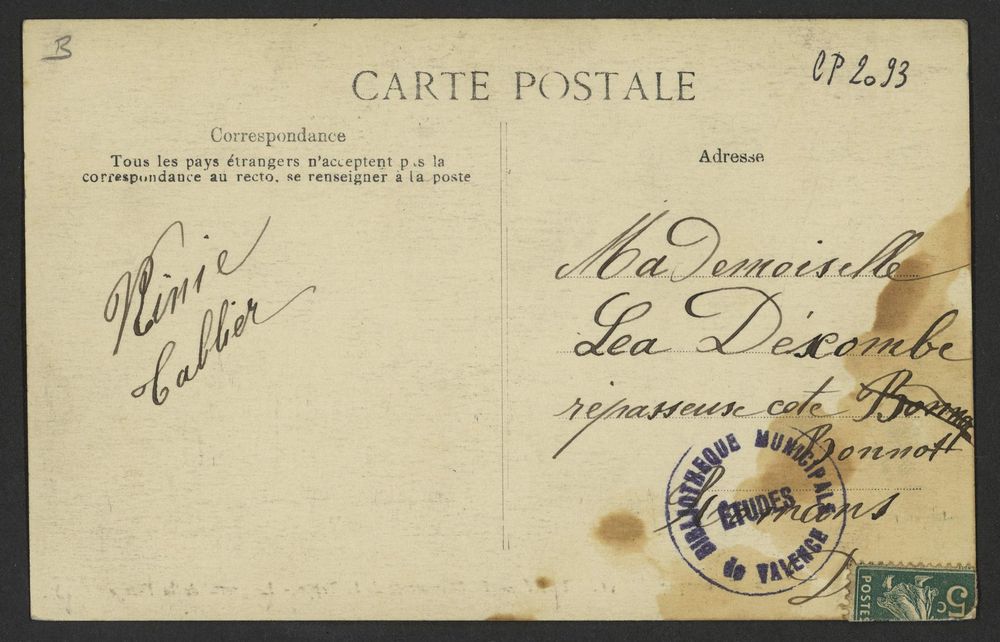 B
CP 2093
CARTE POSTALE
Correspondance
Tous les pays étrangers n'acceptent pas la
correspondance au recto, se renseigner à la poste
Adresse
Ninie
Callier
MaDemoiselle
Lea Déscombe
repasseuse cote Bonno
Bonnott
Romans
D
BIBLIOTHEQUE MUNICIPALE
ÉTUDES
de VALENCE
POSTES
5c